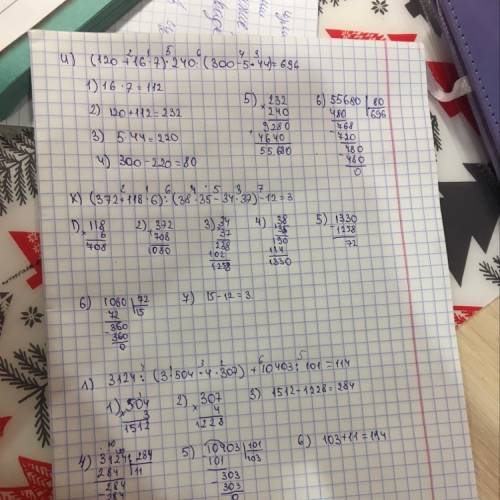 и) (120+16·7)·240:(300-5·44)=696
1) 16·7=112
2) 120+112=232
3) 5·44=220
4) 300-220=80
5) ×232
240
9280
464
55680
6) 55680 | 80
480 | 696
-768
720
-480
480
0
к) (372+118·6):(38·35-34·37)-12=3
1) ×118
6
708
2) +372
708
1080
3) ×34
37
238
102
1258
4) ×38
35
190
114
1330
5) -1330
1258
72
6) 1080 | 72
72 | 15
-360
360
0
7) 15-12=3
л) 3124:(3·504-4·307)+10403:101=114
1) ×504
3
1512
2) ×307
4
1228
3) 1512-1228=284
4) 3124 | 284
284 | 11
-284
284
5) 10403 | 101
101 | 103
-303
303
0
6) 103+11=114